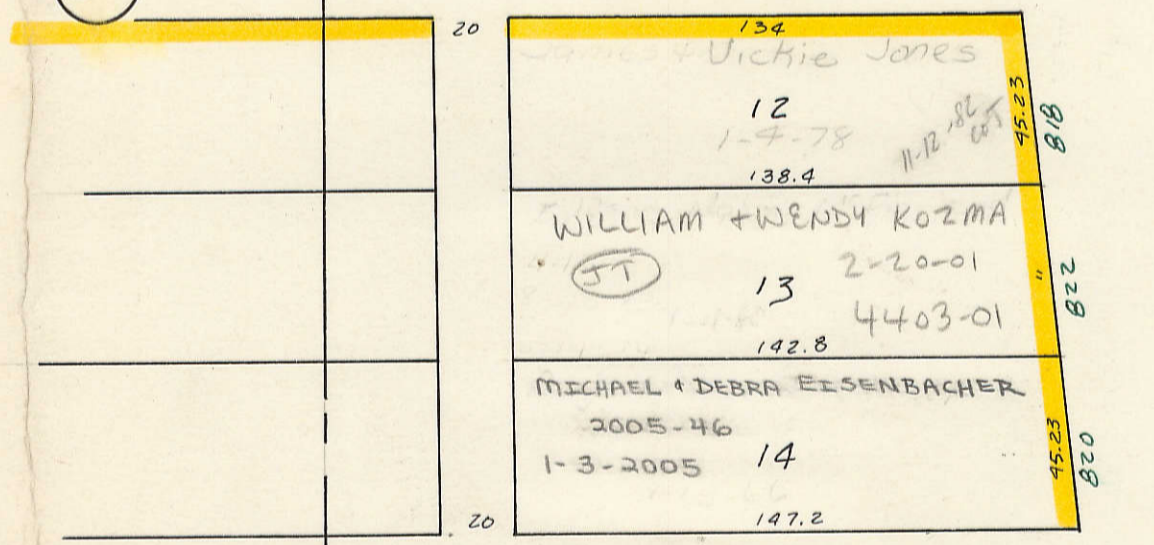 20
134
Vickie Jones
12
1-4-78
11-12-'82
45.23
818
138.4
WILLIAM + WENDY KOZMA
JT
2-20-01
13
4403-01
"
822
142.8
MICHAEL & DEBRA EISENBACHER
2005-46
1-3-2005
14
45.23
820
20
147.2